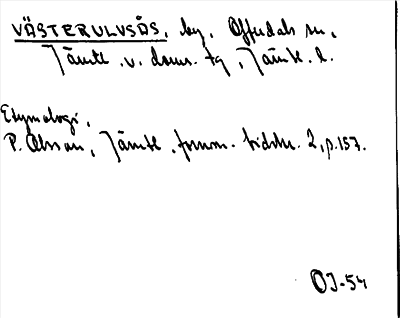 VÄSTERULVSÅS, by, Offerdals sn,
Jämtl. v. doms. tg, Jämtl. l.
Etymologi,
P. Olsson, Jämtl. fornm. tidskr. 2, p.157.
OJ-54